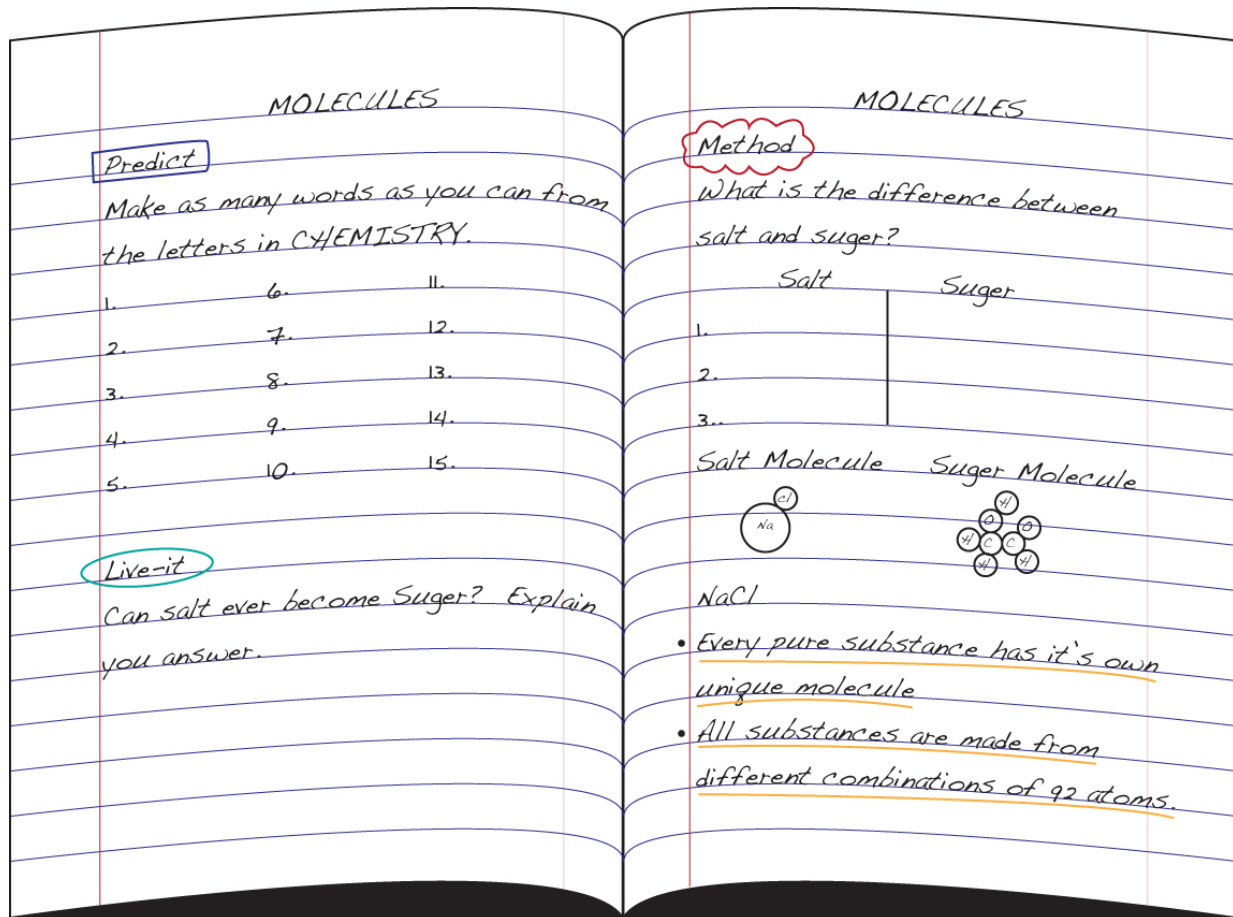 MOLECULES
Predict
Make as many words as you can from
the letters in CHEMISTRY.
1. 6. 11.
2. 7. 12.
3. 8. 13.
4. 9. 14.
5. 10. 15.
Live-it
Can salt ever become Suger? Explain
you answer.
MOLECULES
Method
What is the difference between
salt and suger?
Salt Suger
1.
2.
3..
Salt Molecule Suger Molecule
Cl
Na
H
O O
H C C
H H
NaCl
• Every pure substance has it's own
unique molecule
• All substances are made from
different combinations of 92 atoms.